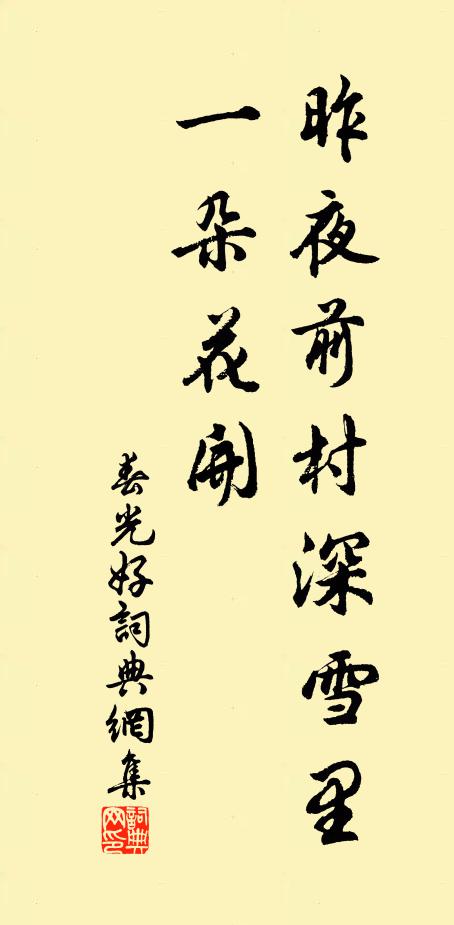 昨夜前村深雪里
一朵花開
春光好詞典網集
詞典
网印